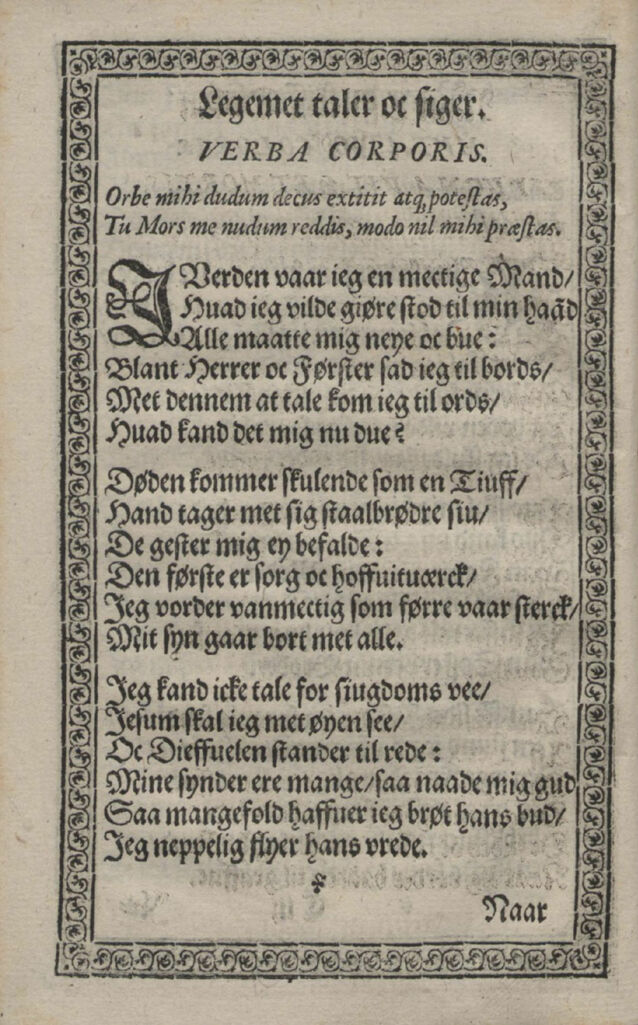 Legemet taler oc siger.
VERBA CORPORIS.
Orbe mihi dudum decus extitit atq; potestas,
Tu Mors me nudum reddis, modo nil mihi præstas.
I Verden vaar ieg en mectige Mand/
Huad ieg vilde giøre stod til min haãd
Alle maatte mig neye oc bue:
Blant Herrer oc Førster sad ieg til bords/
Met dennem at tale kom ieg til ords/
Huad kand det mig nu due?
Døden kommer skulende som en Tiuff/
Hand tager met sig staalbrødre siu/
De gester mig ey befalde:
Den første er sorg oc hoffuituærck/
Jeg vorder vanmectig som førre vaar sterck/
Mit syn gaar bort met alle.
Jeg kand icke tale for siugdoms vee/
Jesum skal ieg met øyen see/
Oc Dieffuelen stander til rede:
Mine synder ere mange/saa naade mig gud
Saa mangefold haffuer ieg brøt hans bud/
Jeg neppelig flyer hans vrede.
Naar